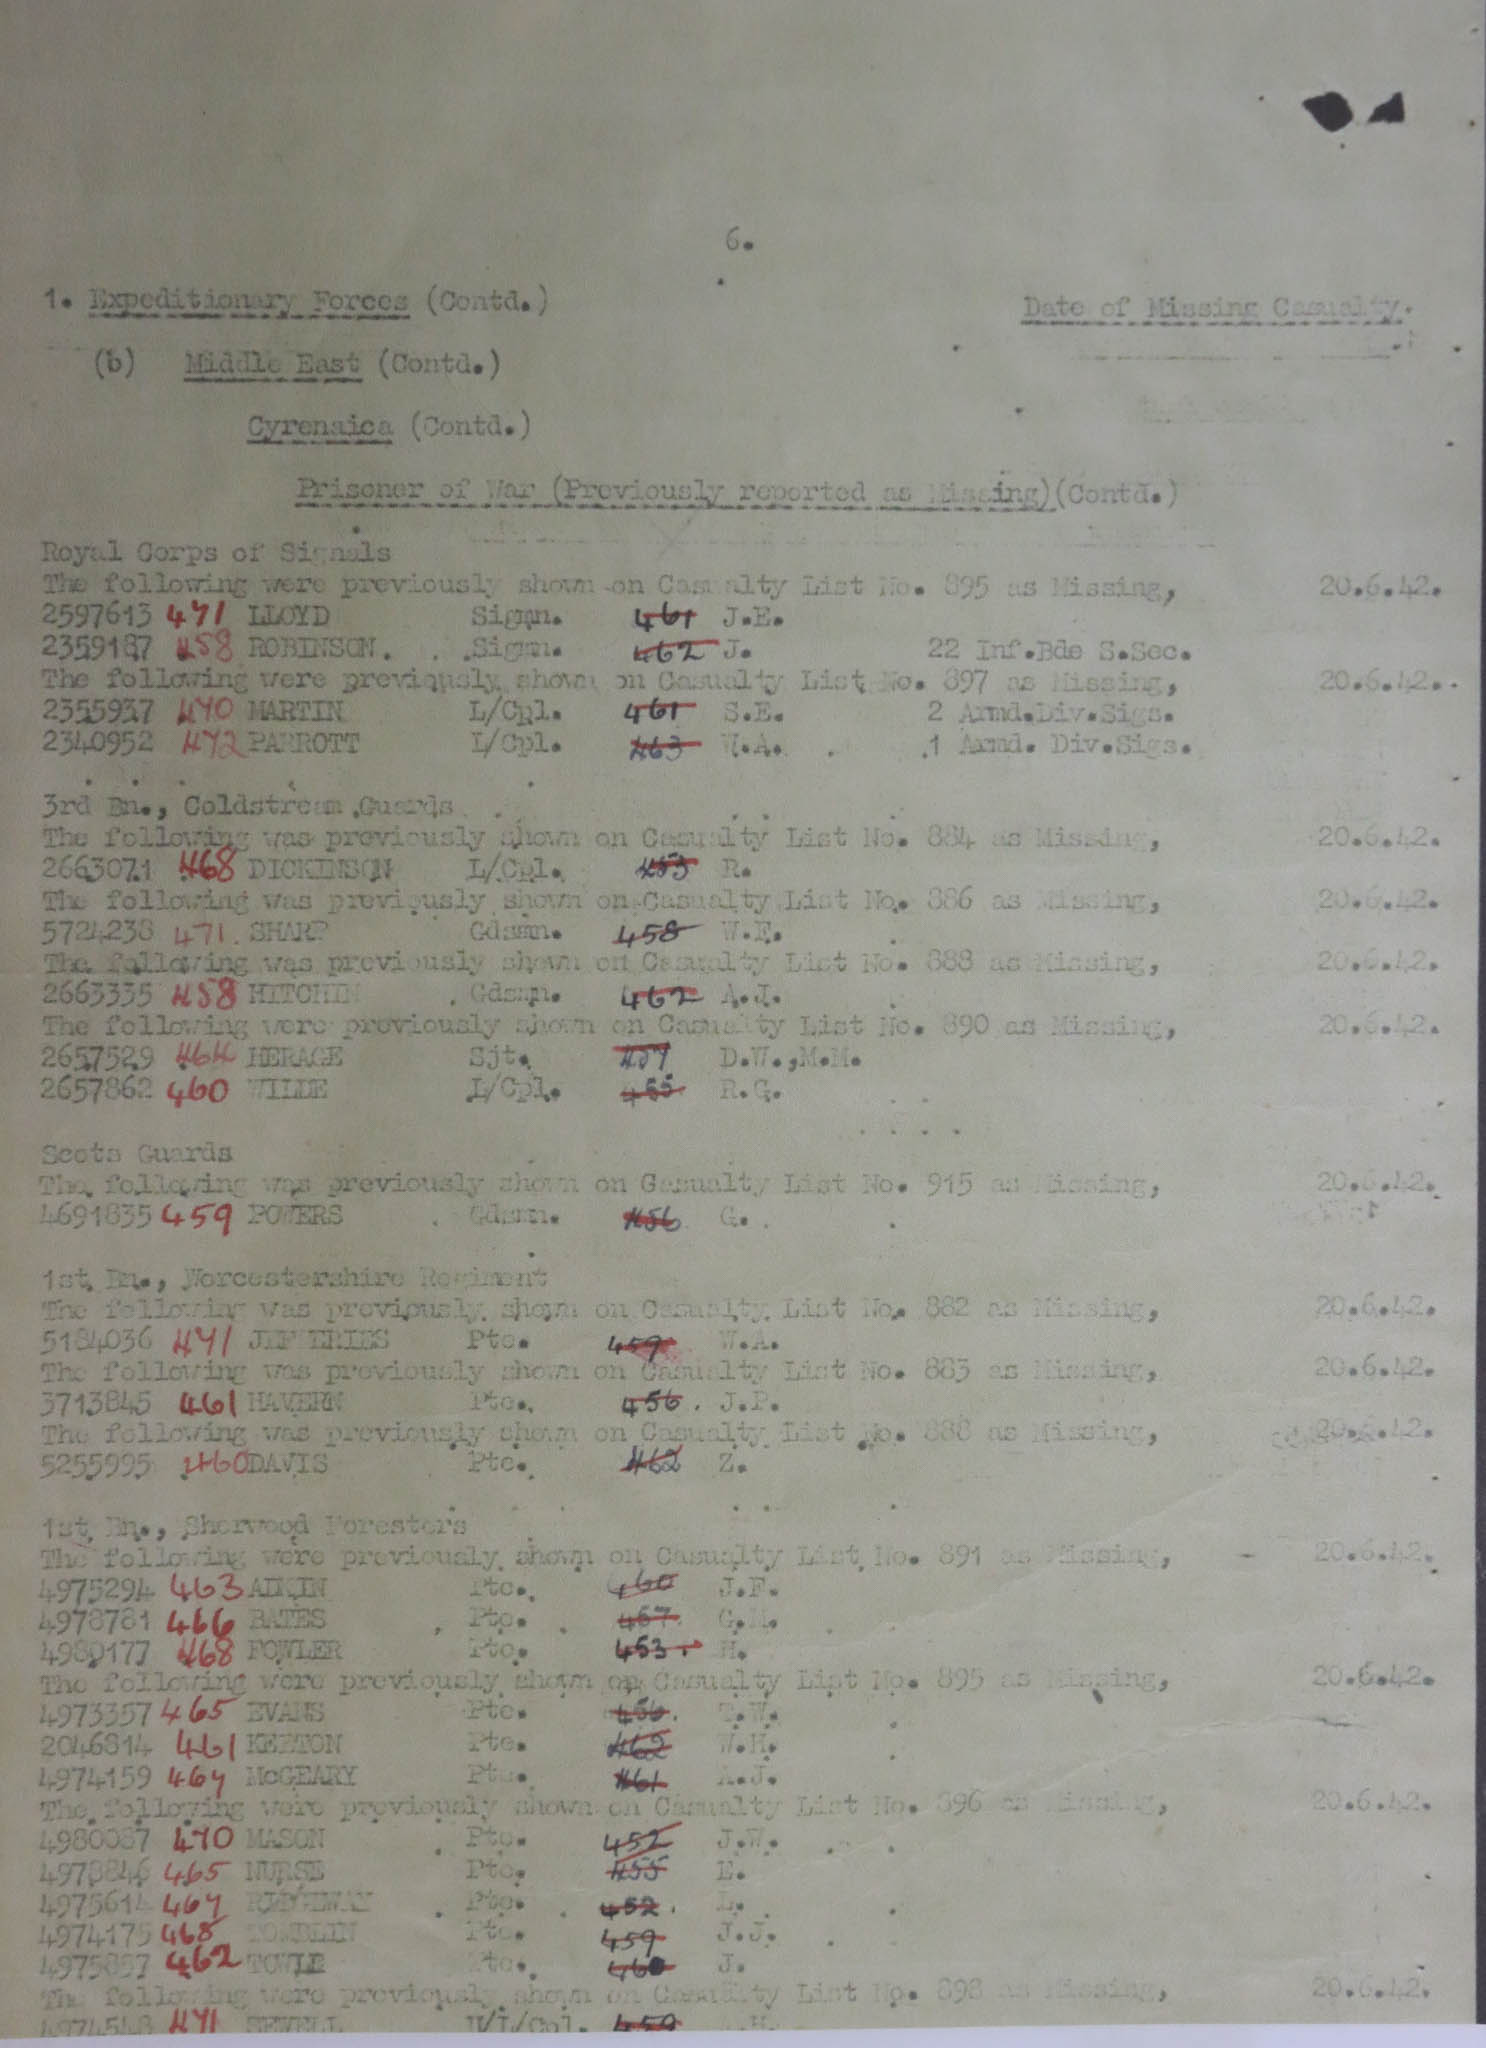 6.
1. Expeditionary Forces (Contd.) Date of Missing Casualty.
(b) Middle East (Contd.)
Cyrenaica (Contd.)
Prisoner of War (Previously reported as Missing)(Contd.)
Royal Corps of Signals
The following were previously shown on Casualty List No. 895 as Missing, 20.6.42.
2597613 471 LLOYD Sigmn. 461 J.E.
2359187 458 ROBINSON. Sigmn. 462 J. 22 Inf.Bde S.Sec.
The following were previously shown on Casualty List No. 897 as Missing, 20.6.42.
2355937 470 MARTIN L/Cpl. 461 S.E. 2 Armd.Div.Sigs.
2340952 472 PARROTT L/Cpl. 463 W.A. 1 Armd. Div.Sigs.
3rd Bn., Coldstream Guards
The following was previously shown on Casualty List No. 884 as Missing, 20.6.42.
2663071 468 DICKINSON L/Cpl. 453 R.
The following was previously shown on Casualty List No. 886 as Missing, 20.6.42.
5724238 471. SHARP Gdsmn. 458 W.E.
The following was previously shown on Casualty List No. 888 as Missing, 20.6.42.
2663335 458 HITCHIN Gdsmn. 462 A.J.
The following were previously shown on Casualty List No. 890 as Missing, 20.6.42.
2657529 464 HERAGE Sjt. 457 D.W.,M.M.
2657862 460 WILDE L/Cpl. 455 R.G.
Scots Guards
The following was previously shown on Casualty List No. 915 as Missing, 20.6.42.
4691835 459 POWERS Gdsmn. 456 G.
1st Bn., Worcestershire Regiment
The following was previously shown on Casualty List No. 882 as Missing, 20.6.42.
5184036 471 JEFFERIES Pte. 459 W.A.
The following was previously shown on Casualty List No. 883 as Missing, 20.6.42.
3713845 461 HAVERN Pte. 456. J.P.
The following was previously shown on Casualty List No. 888 as Missing, 20.6.42.
5255995 460 DAVIS Pte. 462 Z.
1st Bn., Sherwood Foresters
The following were previously shown on Casualty List No. 891 as Missing, 20.6.42.
4975294 463 AIKIN Pte. 460 J.F.
4978781 466 BATES Pte. 457. G.M.
4980177 468 FOWLER Pte. 453. H.
The following were previously shown on Casualty List No. 895 as Missing, 20.6.42.
4973357 465 EVANS Pte. 456. T.W.
2046814 461 KEETON Pte. 462 W.H.
4974159 467 McGEARY Pte. 461 A.J.
The following were previously shown on Casualty List No. 896 as Missing, 20.6.42.
4980087 470 MASON Pte. 452 J.W.
4978846 465 NURSE Pte. 455 E.
4975614 467 RIDGEWAY Pte. 452. L.
4974175 468 TOMBLIN Pte. 459 J.J.
4975857 462 TOWLE Pte. 460 J.
The following were previously shown on Casualty List No. 898 as Missing, 20.6.42.
4974548 471 SEWELL 459